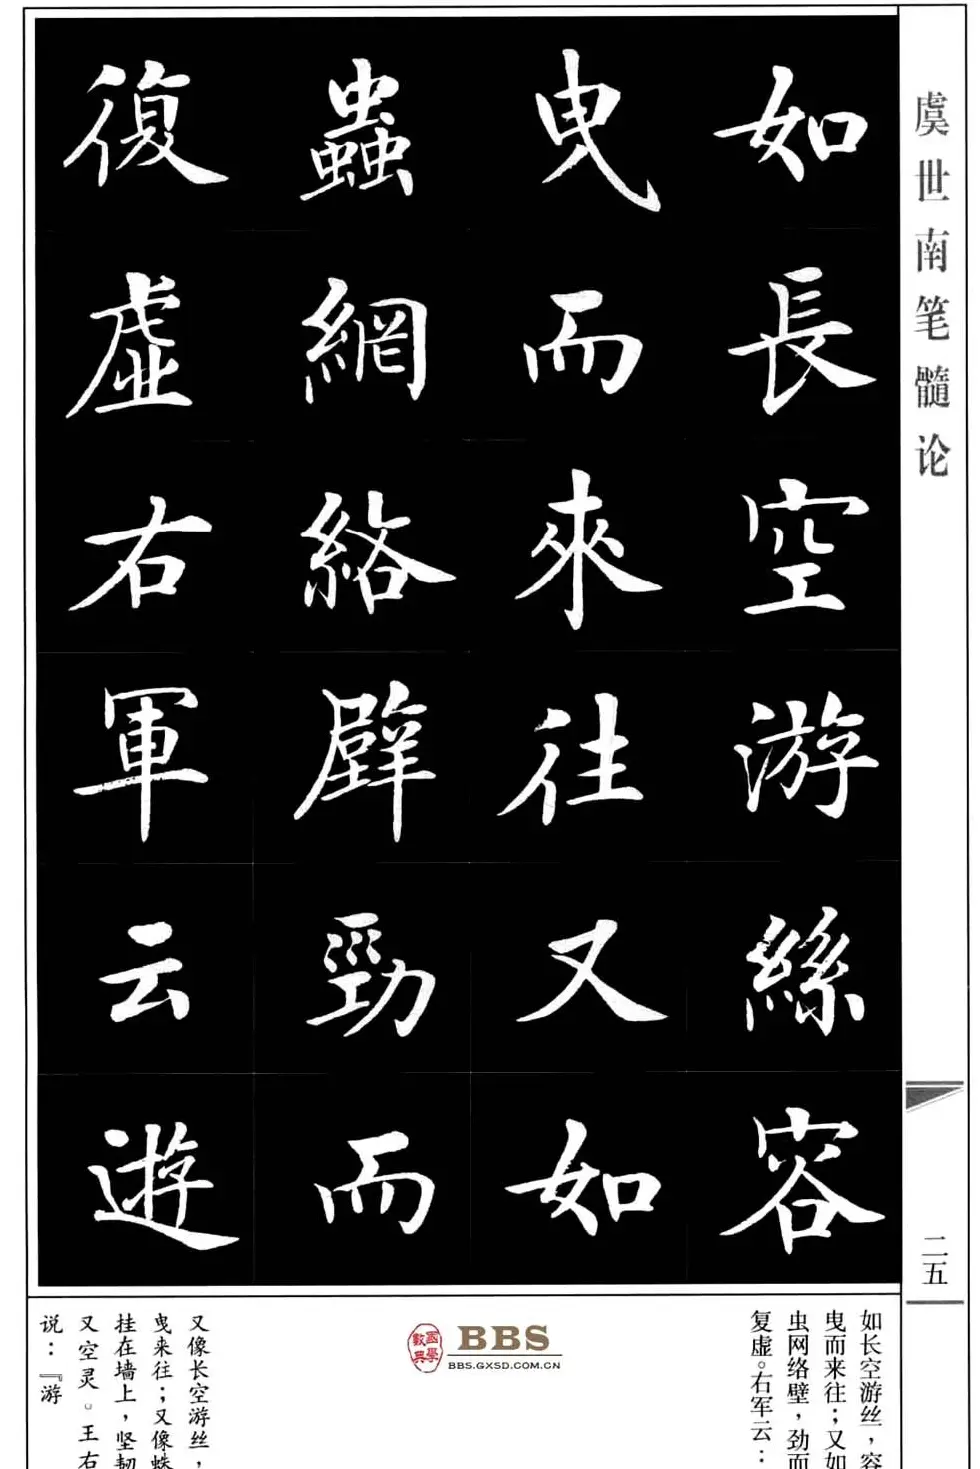 虞世南笔髓论
二五
如長空游絲容
曳而來往又如
蟲網絡壁勁而
復虛右軍云遊
如长空游丝，容
曳而来往；又如
虫网络壁，劲而
复虚。右军云：
國學
數典
BBS
BBS.GXSD.COM.CN
又像长空游丝，
曳来往；又像蛛
挂在墙上，坚韧
又空灵。王右
说：『游